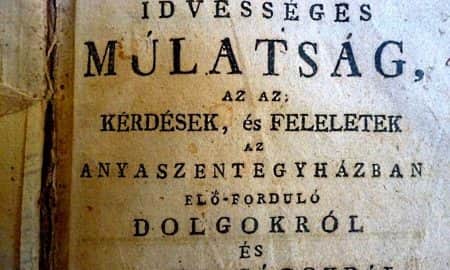 IDVESSÉGES
MÚLATSÁG,
AZ AZ:
KÉRDÉSEK, és FELELETEK
AZ
ANYASZENTEGYHÁZBAN
ELŐ-FORDULÓ
DOLGOKRÓL
ÉS